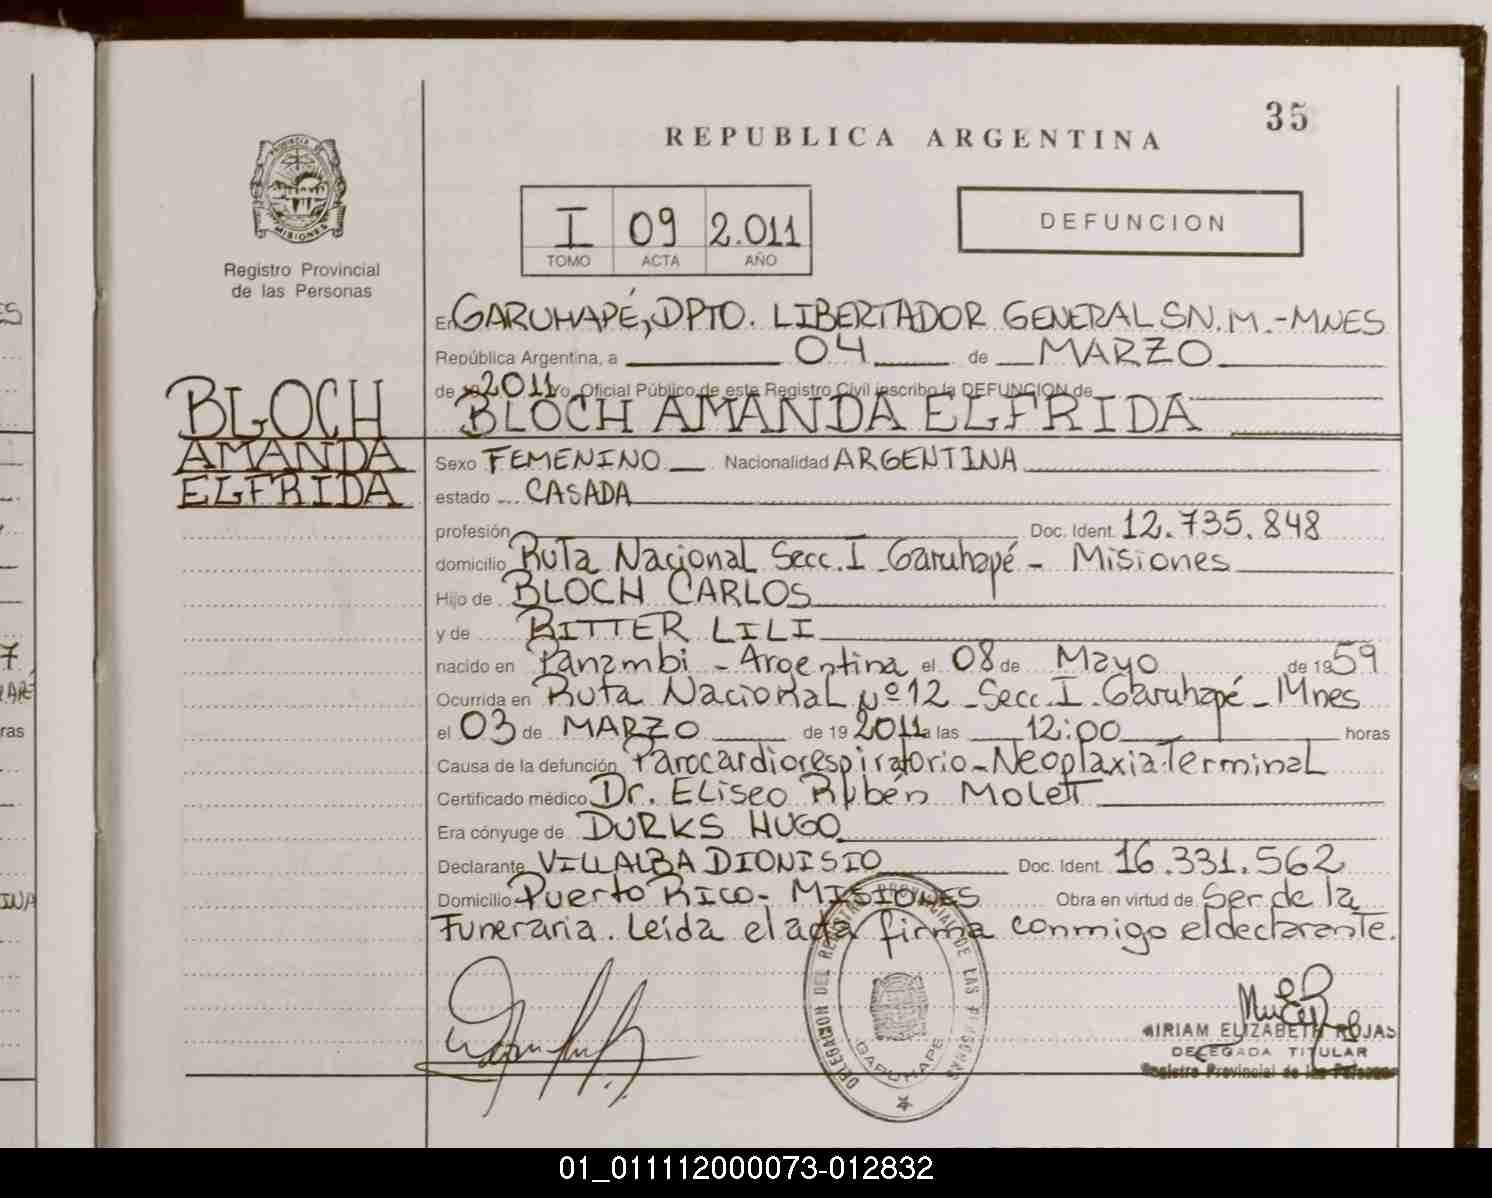 35
REPUBLICA ARGENTINA
PROVINCIA DE
MISIONES
Registro Provincial
de las Personas
I 09 2.011
TOMO ACTA AÑO
DEFUNCION
En GARUHAPÉ, DPTO. LIBERTADOR GENERAL SN. M. - MNES
República Argentina, a 04 de MARZO
de 2011 Yo, Oficial Público de este Registro Civil inscribo la DEFUNCION de
BLOCH AMANDA ELFRIDA
BLOCH
AMANDA
ELFRIDA
Sexo FEMENINO Nacionalidad ARGENTINA
estado CASADA
profesión Doc. Ident. 12.735.848
domicilio Ruta Nacional Secc. I Garuhapé - Misiones
Hijo de BLOCH CARLOS
y de RITTER LILI
nacido en Panambi - Argentina el 08 de Mayo de 1959
Ocurrida en Ruta Nacional Nº 12 - Secc. I. Garuhapé - Mnes
el 03 de MARZO de 19 2011 a las 12:00 horas
Causa de la defunción Parocardiorespiratorio - Neoplaxia Terminal
Certificado médico Dr. Eliseo Rubén Molett
Era cónyuge de DURKS HUGO
Declarante VILLALBA DIONISIO Doc. Ident. 16.331.562
Domicilio Puerto Rico - MISIONES Obra en virtud de Ser de la
Funeraria. Leída el acta firma conmigo el declarante.
DELEGACION DEL REGISTRO PROVINCIAL DE LAS PERSONAS
GARUHAPE
MIRIAM ELIZABETH ROJAS
DELEGADA TITULAR
Registro Provincial de las Personas
01_011112000073-012832